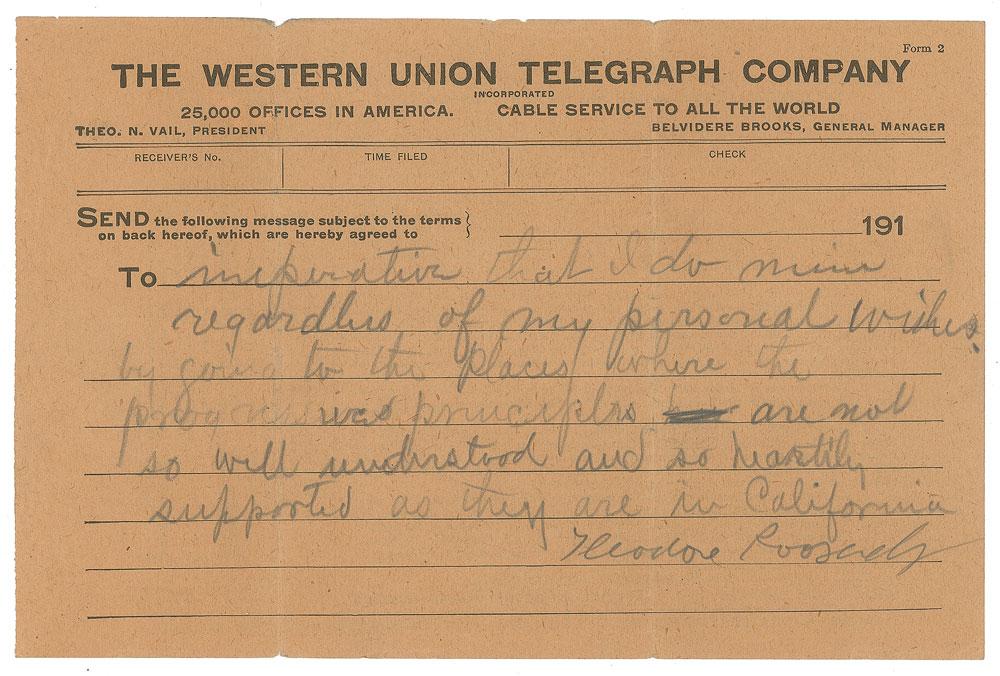 Form 2
THE WESTERN UNION TELEGRAPH COMPANY
INCORPORATED
25,000 OFFICES IN AMERICA. CABLE SERVICE TO ALL THE WORLD
THEO. N. VAIL, PRESIDENT BELVIDERE BROOKS, GENERAL MANAGER
RECEIVER'S No. TIME FILED CHECK
SEND the following message subject to the terms
on back hereof, which are hereby agreed to
191
To imperative that I do mine
regardless of my personal wishes
by going to the places where the
progressives principles are not
so well understood and so heartily
supported as they are in California
Theodore Roosevelt